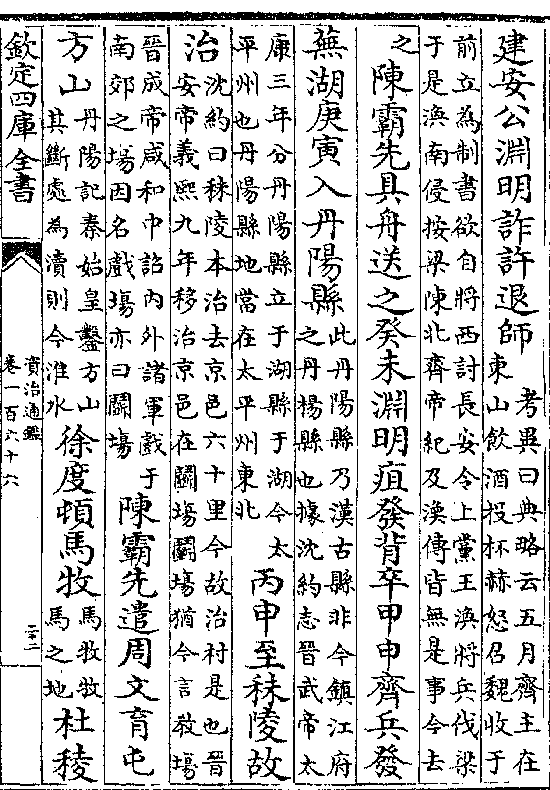 建安公淵明詐許退師
考異曰典略云五月齊主在
東山飲酒投杯赫怒召魏收于
前立為制書欲自將西討長安令上黨王渙將兵伐梁
于是渙南侵按梁陳北齊帝紀及渙傳皆無是事今去
之
陳霸先具舟送之癸未淵明疽發背卒甲申齊兵發
蕪湖庚寅入丹陽縣
此丹陽縣乃漢古縣非今鎮江府
之丹楊縣也據沈約志晉武帝太
康三年分丹陽縣立于湖縣于湖今太
平州也丹陽縣地當在太平州東北
丙申至秣陵故
治
沈約曰秣陵本治去京邑六十里今故治村是也晉
安帝義熙九年移治京邑在鬭場鬭場猶今言教場
晉成帝咸和中詔內外諸軍戲于
南郊之場因名戲場亦曰鬭場
陳霸先遣周文育屯
方山
丹陽記秦始皇鑿方山
其斷處為瀆則今淮水
徐度頓馬牧
馬牧牧
馬之地
杜稜
欽定四庫全書
資治通鑑
卷一百六十六